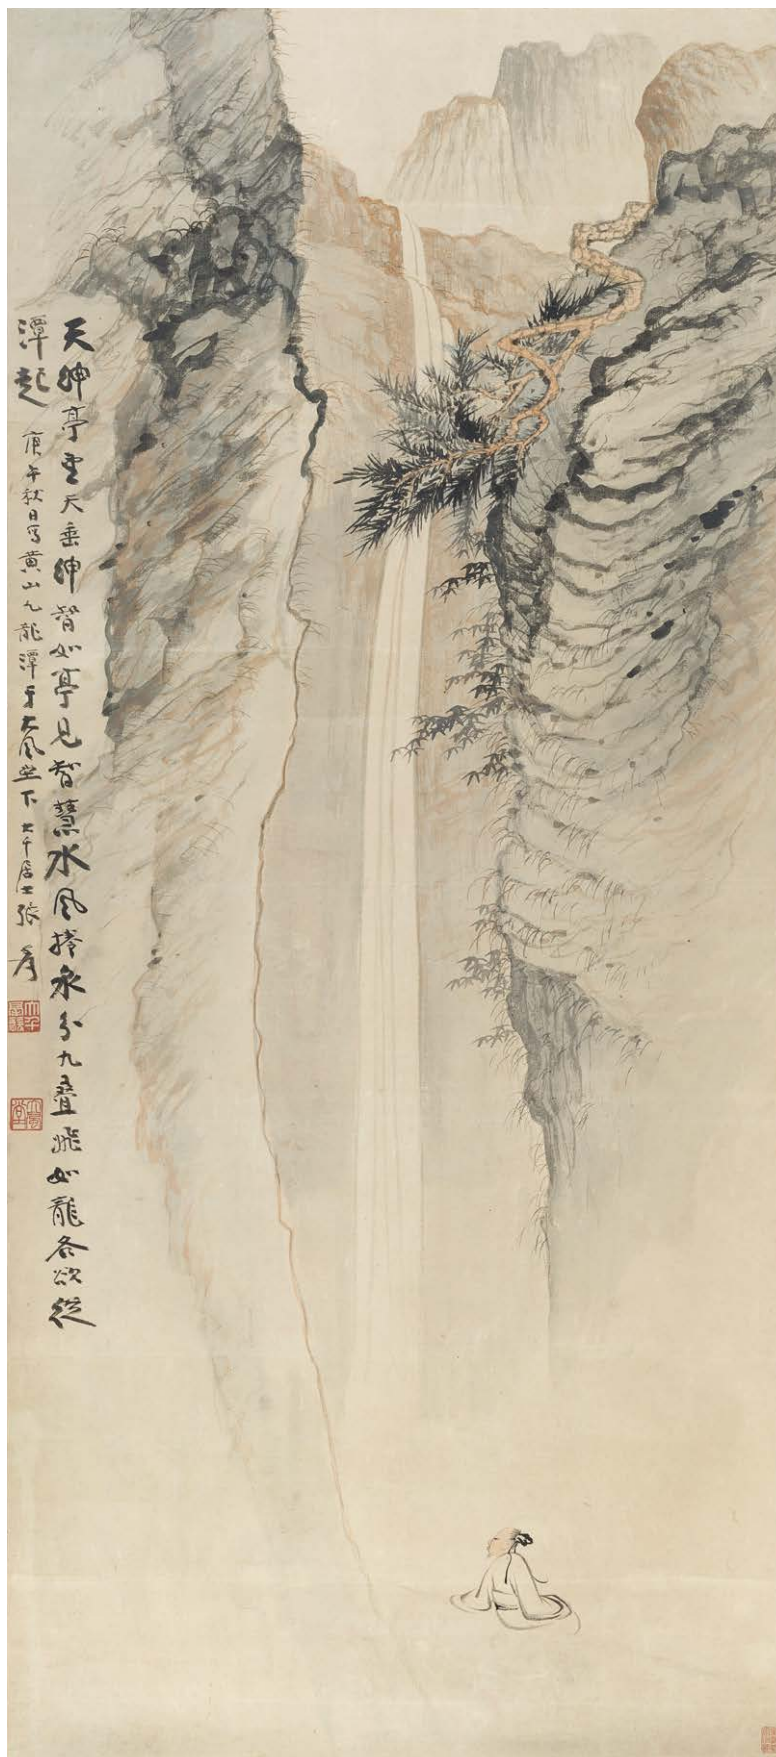 天紳亭望天垂紳智如亭見智慧水風捲水分九叠飛如龍各欲從
潭起 庚午秋日寫黃山九龍潭于大風堂下 大千居士張爰